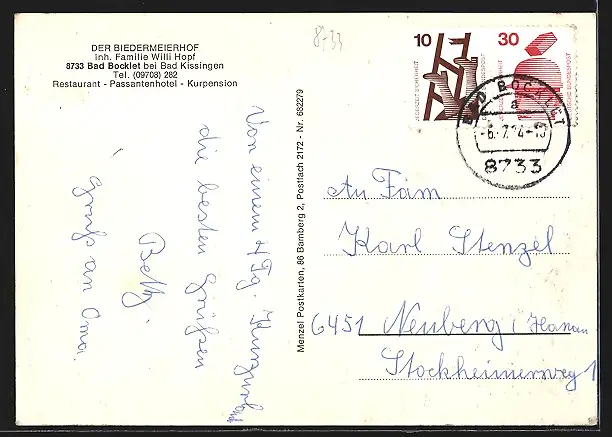 DER BIEDERMEIERHOF
Inh. Familie Willi Hopf
8733 Bad Bocklet bei Bad Kissingen
Tel. (09708) 282
Restaurant - Passantenhotel - Kurpension
8733
10
30
JEDERZEIT SICHERHEIT
DEUTSCHE BUNDESPOST
JEDERZEIT SICHERHEIT
DEUTSCHE BUNDESPOST
BAD BOCKLET
a
-6.-7.74-15
8733
Von einem 4 Tg. Kurzurlaub
die besten Grüßen
Betty.
Gruß an Oma.
Menzel Postkarten, 86 Bamberg 2, Postfach 2172 - Nr. 682279
An Fam
Karl Stenzel
6451 Neuberg i/Hanau
Stockheimerweg 1